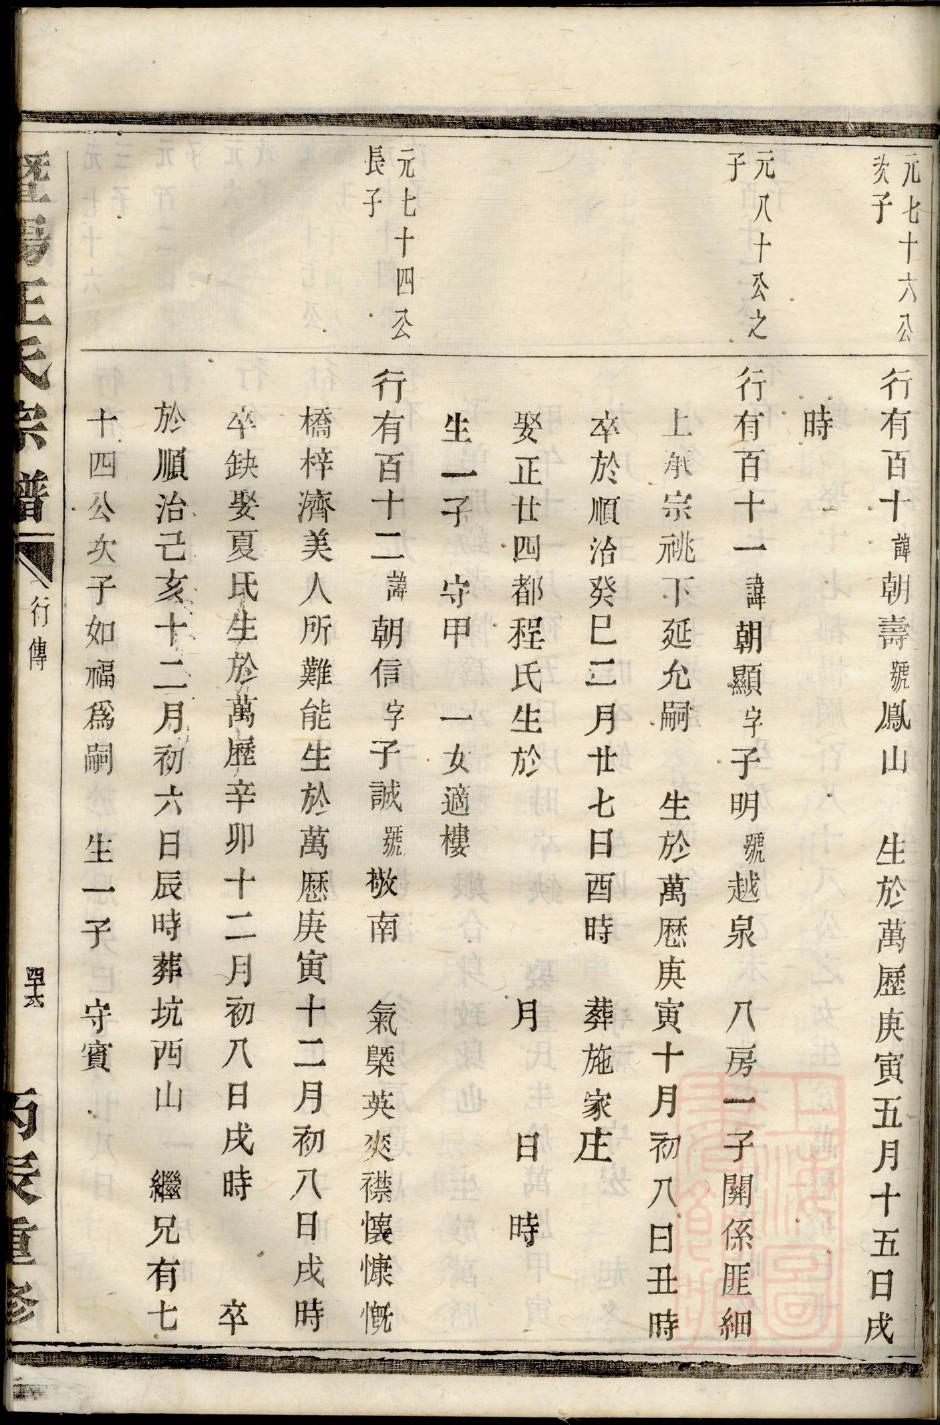 元七十六公
次子
行有百十諱朝壽號鳳山　生於萬歷庚寅五月十五日戌
時
元八十公之
子
行有百十一諱朝顯字子明號越泉　八房一子關係匪細
上承宗祧下延允嗣　生於萬歷庚寅十月初八日丑時
卒於順治癸巳三月廿七日酉時　葬施家庄
娶正廿四都程氏生於　　月　　日　時
生一子　守甲　一女適樓
元七十四公
長子
行有百十二諱朝信字子誠號敬南　氣槩英爽襟懷慷慨
橋梓濟美人所難能生於萬歷庚寅十二月初八日戌時
卒缺娶夏氏生於萬歷辛卯十二月初八日戌時　　卒
於順治己亥十二月初六日辰時葬坑西山　繼兄有七
十四公次子如福爲嗣　生一子　守賓
暨陽王氏宗譜
行傳
丙辰重修